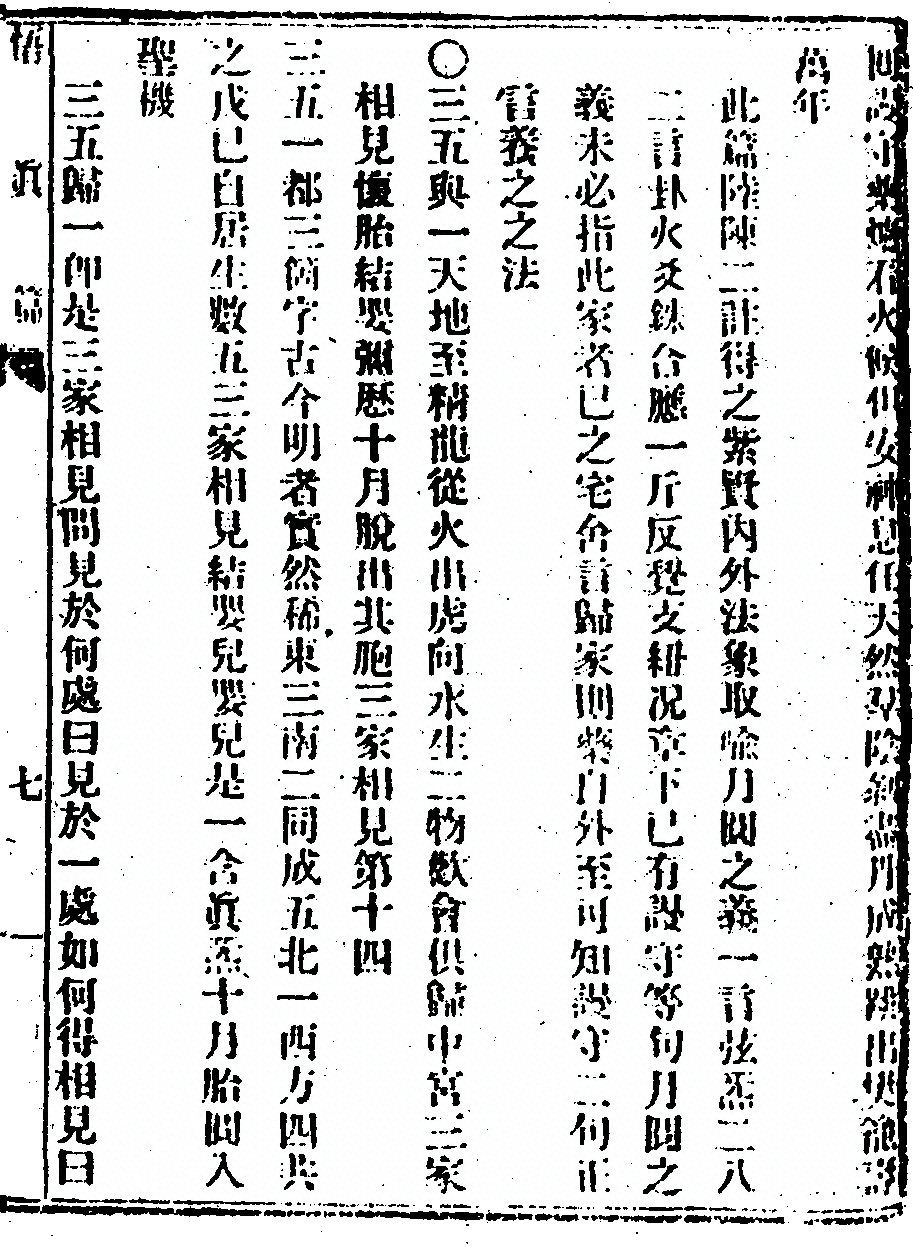 回謾守藥爐看火候但安神息任天然羣陰剝盡丹成熟跳出樊籠壽
萬年
此篇陸陳二註得之紫賢內外法象取喻月圓之義一言弦炁二八
二言卦火爻銖合應一斤反覺支紐况章下已有謾守等句月圓之
義未必指此家者已之宅舍言歸家則藥自外至可知謾守二句正
言義之之法
〇三五與一天地至精龍從火出虎向水生二物歡會俱歸中宮三家
相見懷胎結嬰彌歷十月脫出其胞三家相見第十四
三五一都三箇字古今明者實然稀東三南二同成五北一西方四共
之戊己自居生數五三家相見結嬰兒嬰兒是一含眞炁十月胎圓入
聖機
三五歸一卽是三家相見問見於何處曰見於一處如何得相見曰
悟眞篇
七
一